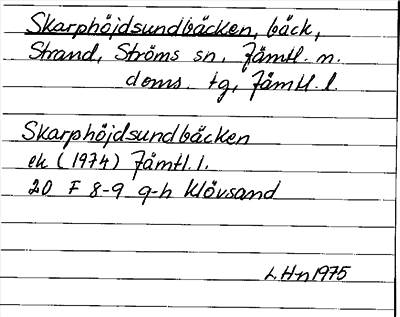 Skarphöjdsundbäcken, bäck,
Strand, Ströms sn, Jämtl. n.
doms. tg, Jämtl. l.
Skarphöjdsundbäcken
ek (1974) Jämtl. l.
20 F 8-9 g-h Klövsand
L.Hn 1975